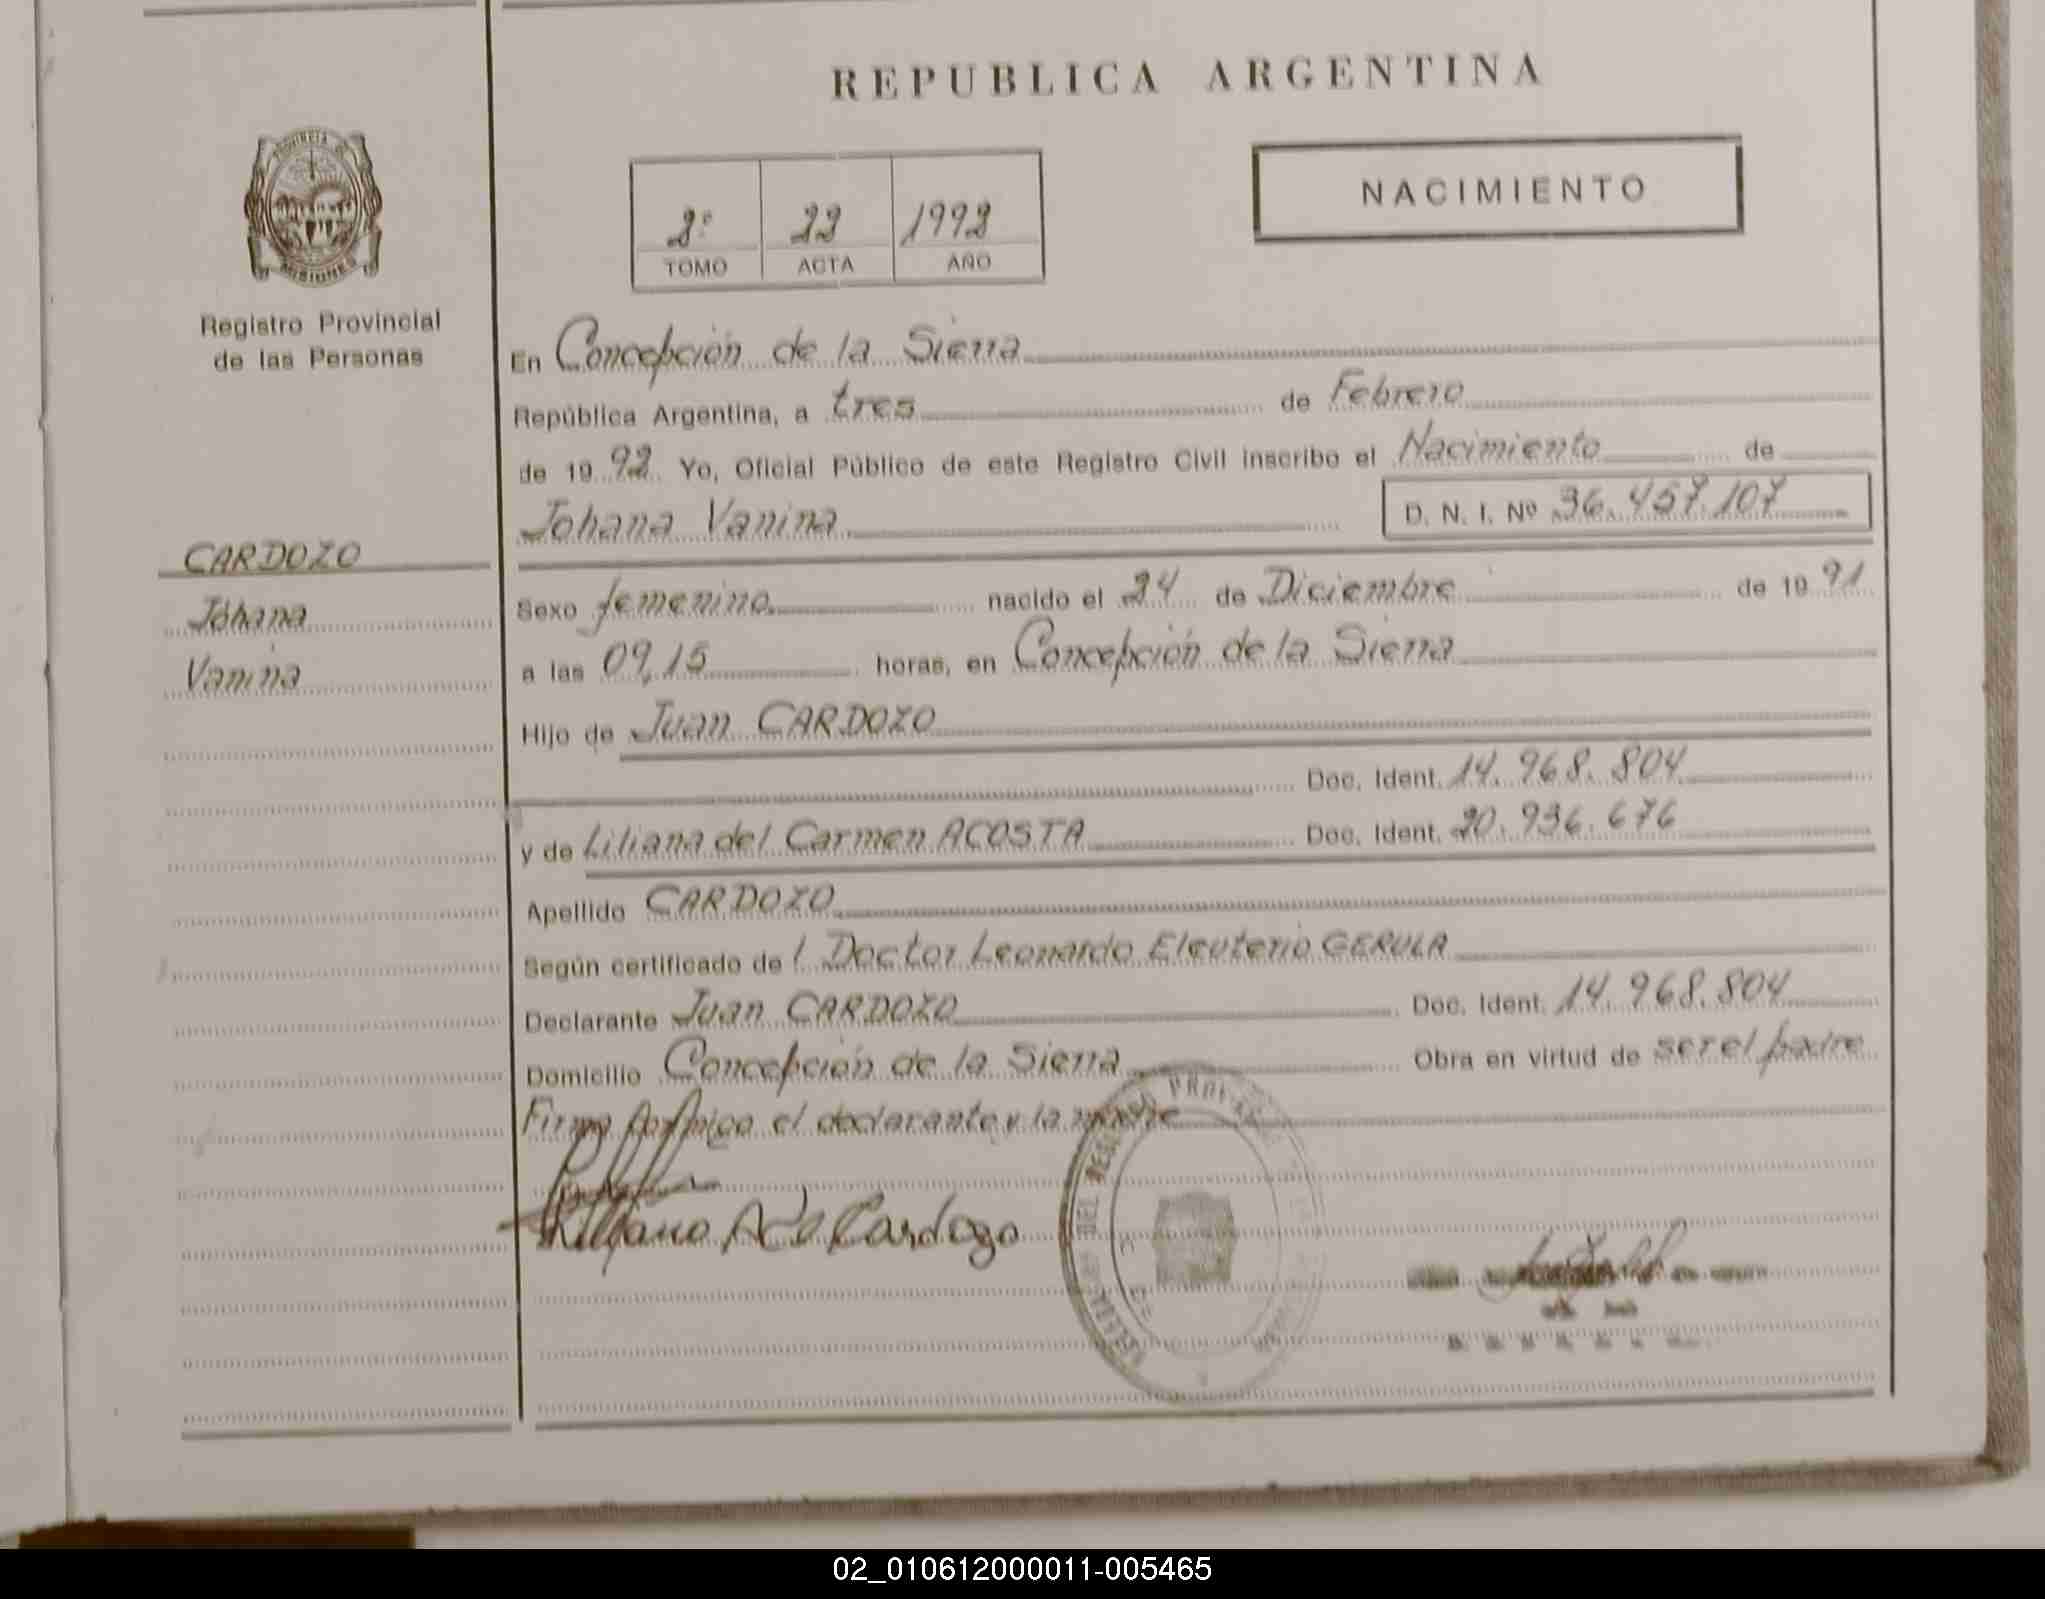 REPUBLICA ARGENTINA
PROVINCIA DE
MISIONES
Registro Provincial
de las Personas
2º 22 1992
TOMO ACTA AÑO
NACIMIENTO
En Concepción de la Sierra
República Argentina, a tres de Febrero
de 19 92 Yo, Oficial Público de este Registro Civil inscribo el Nacimiento de
Johana Vanina D. N. I. Nº 36.457.107
CARDOZO
Johana
Vanina
Sexo femenino nacido el 24 de Diciembre de 19 91
a las 09,15 horas, en Concepción de la Sierra
Hijo de Juan CARDOZO
Doc. Ident. 14.968.804
y de Liliana del Carmen ACOSTA Doc. Ident. 20.936.676
Apellido CARDOZO
Según certificado de l Doctor Leonardo Eleuterio GERULA
Declarante Juan CARDOZO Doc. Ident. 14.968.804
Domicilio Concepción de la Sierra Obra en virtud de ser el padre
Firma conmigo el declarante y la madre
Liliana A de Cardozo
DEL
02_010612000011-005465